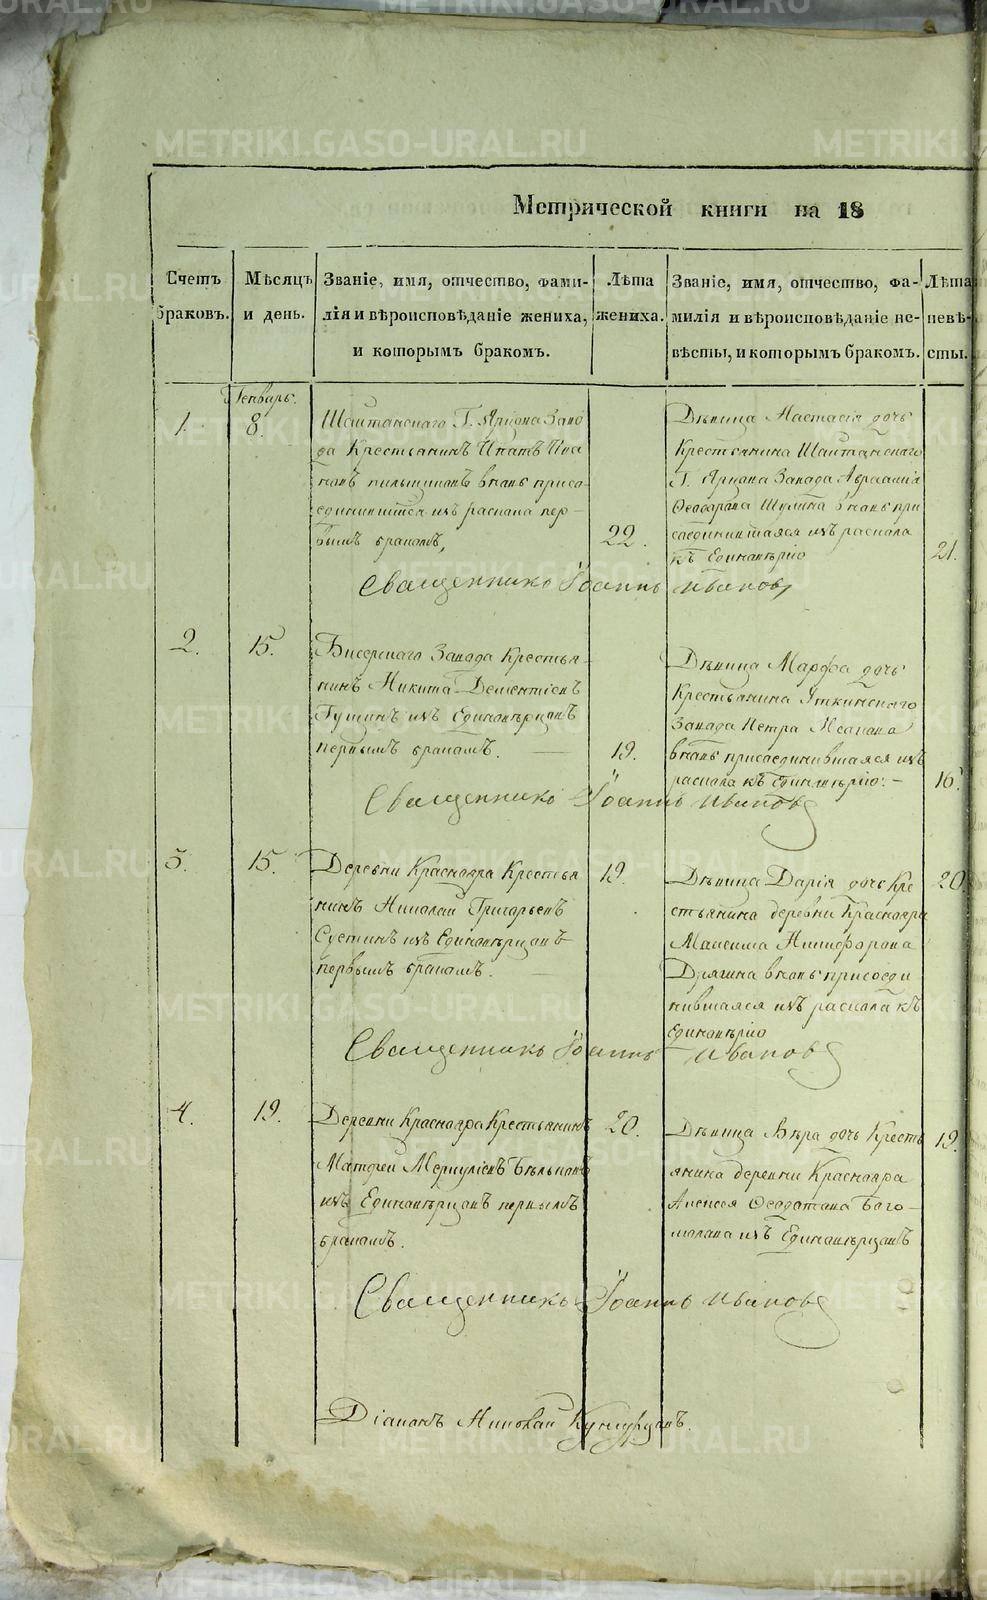 Метрической книги на 18
Счетъ браковъ.
Мѣсяцъ и день.
Званіе, имя, отчество, фами-
лія и вѣроисповѣданіе жениха,
и которымъ бракомъ.
Лѣта жениха.
Званіе, имя, отчество, фа-
милія и вѣроисповѣданіе не-
вѣсты, и которымъ бракомъ.
Лѣта невѣ-
сты.
Генварь.
1.
8.
Шайтанскаго Г. Ярцова Заво
да Крестьянинъ Ипатъ Ива
новъ вновь присо-
единившійся изъ раскола пер-
вымъ бракомъ,
22.
Дѣвица Настасія дочь
Крестьянина Шайтанскаго
Г. Ярцова Завода Авраамія
Ѳеодорова Шулина вновь при
соединившаяся изъ раскола
къ Единовѣрію
21.
Священникъ Іоаннъ Ивановъ
2.
15.
Бисерскаго Завода Крестья-
нинъ Никита Дементіевъ
Гущинъ изъ Единовѣрцовъ
первымъ бракомъ.
19.
Дѣвица Марѳа дочь
Крестьянина Уткинскаго
Завода Петра Исакова
вновь присоединившаяся изъ
раскола къ Единовѣрію.
16.
Священникъ Іоаннъ Ивановъ
3.
15.
Деревни Краснояра Крестья
нинъ Николай Григорьевъ
Сустинъ изъ Единовѣрцовъ
первымъ бракомъ.
19.
Дѣвица Дарія дочь Кре
стьянина деревни Краснояра
Максима Никифорова
Дрягина вновь присоеди
нившаяся изъ раскола къ
Единовѣрію
20.
Священникъ Іоаннъ Ивановъ
4.
19.
Деревни Краснояра Крестьянинъ
Матфей Меркуліевъ Бѣльковъ
изъ Единовѣрцовъ первымъ
бракомъ.
20.
Дѣвица Вѣра дочь Кресть
янина деревни Краснояра
Алексея Ѳеодотова Бого-
молова изъ Единовѣрцовъ
19.
Священникъ Іоаннъ Ивановъ
Діаконъ Николай Кунгурцовъ.
METRIKI.GASO-URAL.RU